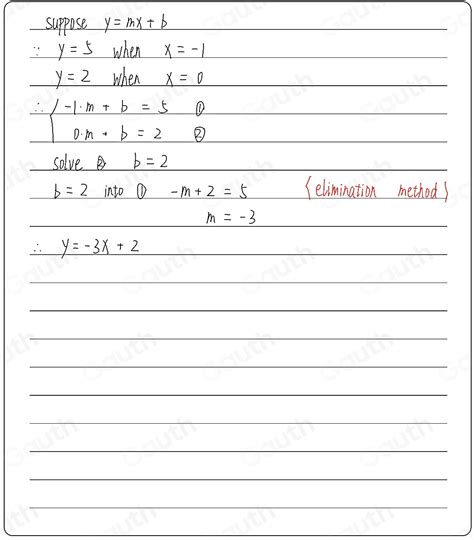 suppose y = mx + b
∵ y = 5 when x = -1
y = 2 when x = 0
∴ { -1·m + b = 5 ①
0·m + b = 2 ②
solve ② b = 2
b = 2 into ① -m + 2 = 5 (elimination method)
m = -3
∴ y = -3x + 2
Gauth